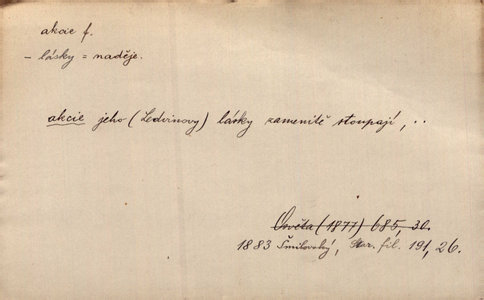 akcie f.
– lásky = naděje.
akcie jeho (Ledvinovy) lásky znamenitě stoupají, ..
Osvěta (1877) 685, 30.
1883 Šmilovský, Star. fil. 191, 26.